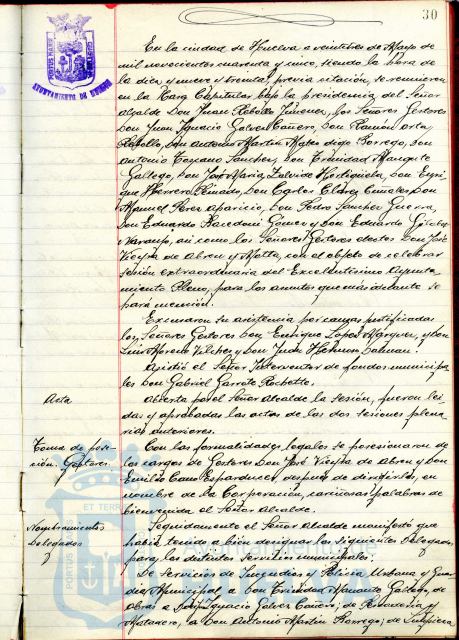 30
AYUNTAMIENTO DE HUELVA
En la ciudad de Huelva a veintitres de Mayo de
mil novecientos cuarenta y uno, siendo la hora de
las diez y nueve y treinta, previa citación, se reunieron
en la Casa Capitular bajo la presidencia del Señor
Alcalde Don Juan Rebollo Jimenez, los Señores Gestores
Don Juan Ignacio Galvez Cañero, Don Ramón
Rebollo, Don Antonio Martín Mateo, Borrego, Don
Antonio Toscano Sanchez, Don Trinidad
Gallego, Don José María Zalvide Hortigüela, Don Enri
que Herrero Pinado, Don Carlos Don
Manuel Perez Aparicio, Don Pedro Sanchez Guerra,
Don Eduardo Gómez y Don Eduardo
Naranjo, así como los Señores Gestores electos Don José
de Abreu y Motta, con el objeto de celebrar
sesión extraordinaria del Excelentísimo Ayunta
miento Pleno, para los asuntos que más adelante se
hará mención.
Excusaron su asistencia por causas justificadas
los Señores Gestores Don Enrique Lopez Marquez, y Don
Luis Moreno Vilches y Don Juan
Asistió el Señor Interventor de fondos municipa
les Don Gabriel Garrote Rochette.
Acta
Abierta por el Señor Alcalde la Sesión, fueron lei
das y aprobadas las actas de las dos sesiones plena
rias anteriores.
Toma de pose
sión. Gestores
Con las formalidades legales se posesionaron de
los cargos de Gestores Don José de Abreu y Don
Emilio Cano, despues de dirigirles, en
nombre de la Corporación, cariñosas palabras de
bienvenida el Señor Alcalde.
Nombramientos
Delegados
Seguidamente el Señor Alcalde manifestó que
había tenido a bien designar los siguientes Delegados,
para los distintos servicios municipales:
De Servicios de Incendios y Policía Urbana y Guar
dia Municipal, a Don Trinidad Gallego, de
Obras a Don Ignacio Galvez Cañero; de y
Matadero, a Don Antonio Martín Borrego; de Limpieza